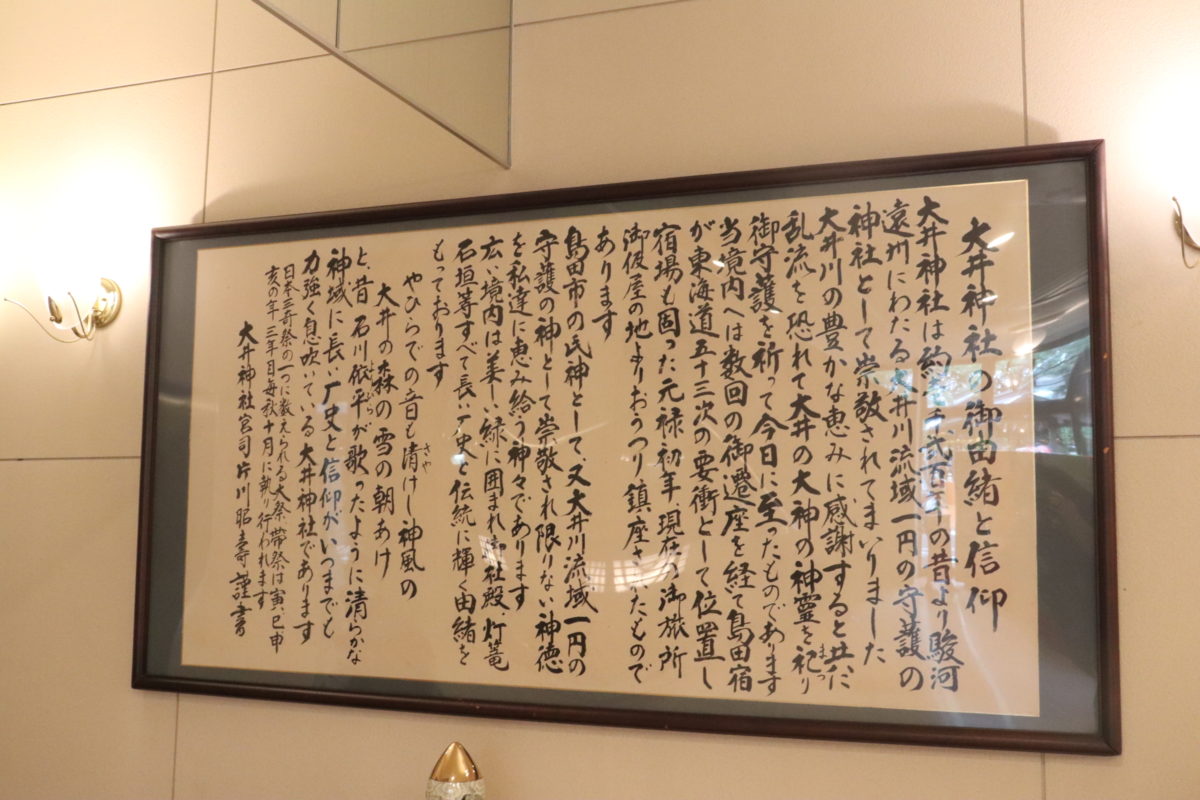 大井神社の御由緒と信仰
大井神社は約壱千弐百年の昔より駿河
遠州にわたる大井川流域一円の守護の
神社として崇敬されてまいりました
大井川の豊かな恵みに感謝すると共に
乱流を恐れて大井の大神の神霊を祀り
御守護を祈って今日に至ったものであります
当境内へは数回の御遷座を経て島田宿
が東海道五十三次の要衝として位置し
宿場も固った元禄初年現在の御旅所
御仮屋の地よりおうつり鎮座されたもので
あります
島田市の氏神として又大井川流域一円の
守護の神として崇敬され限りない神徳
を私達に恵み給う神々であります
広い境内は美しい緑に囲まれ御社殿、灯篭
石垣等すべて長い歴史と伝統に輝く由緒を
もっております
やひらでの音も清けし神風の
大井の森の雪の朝あけ
と、昔石川依平が歌ったように清らかな
神域に長い歴史と信仰がいつまでも
力強く息吹いている大井神社であります
日本三奇祭の一つに数えられる大祭帯祭は寅、巳、申
亥の年三年目毎秋十月に執り行われます
大井神社宮司片川昭寿謹書